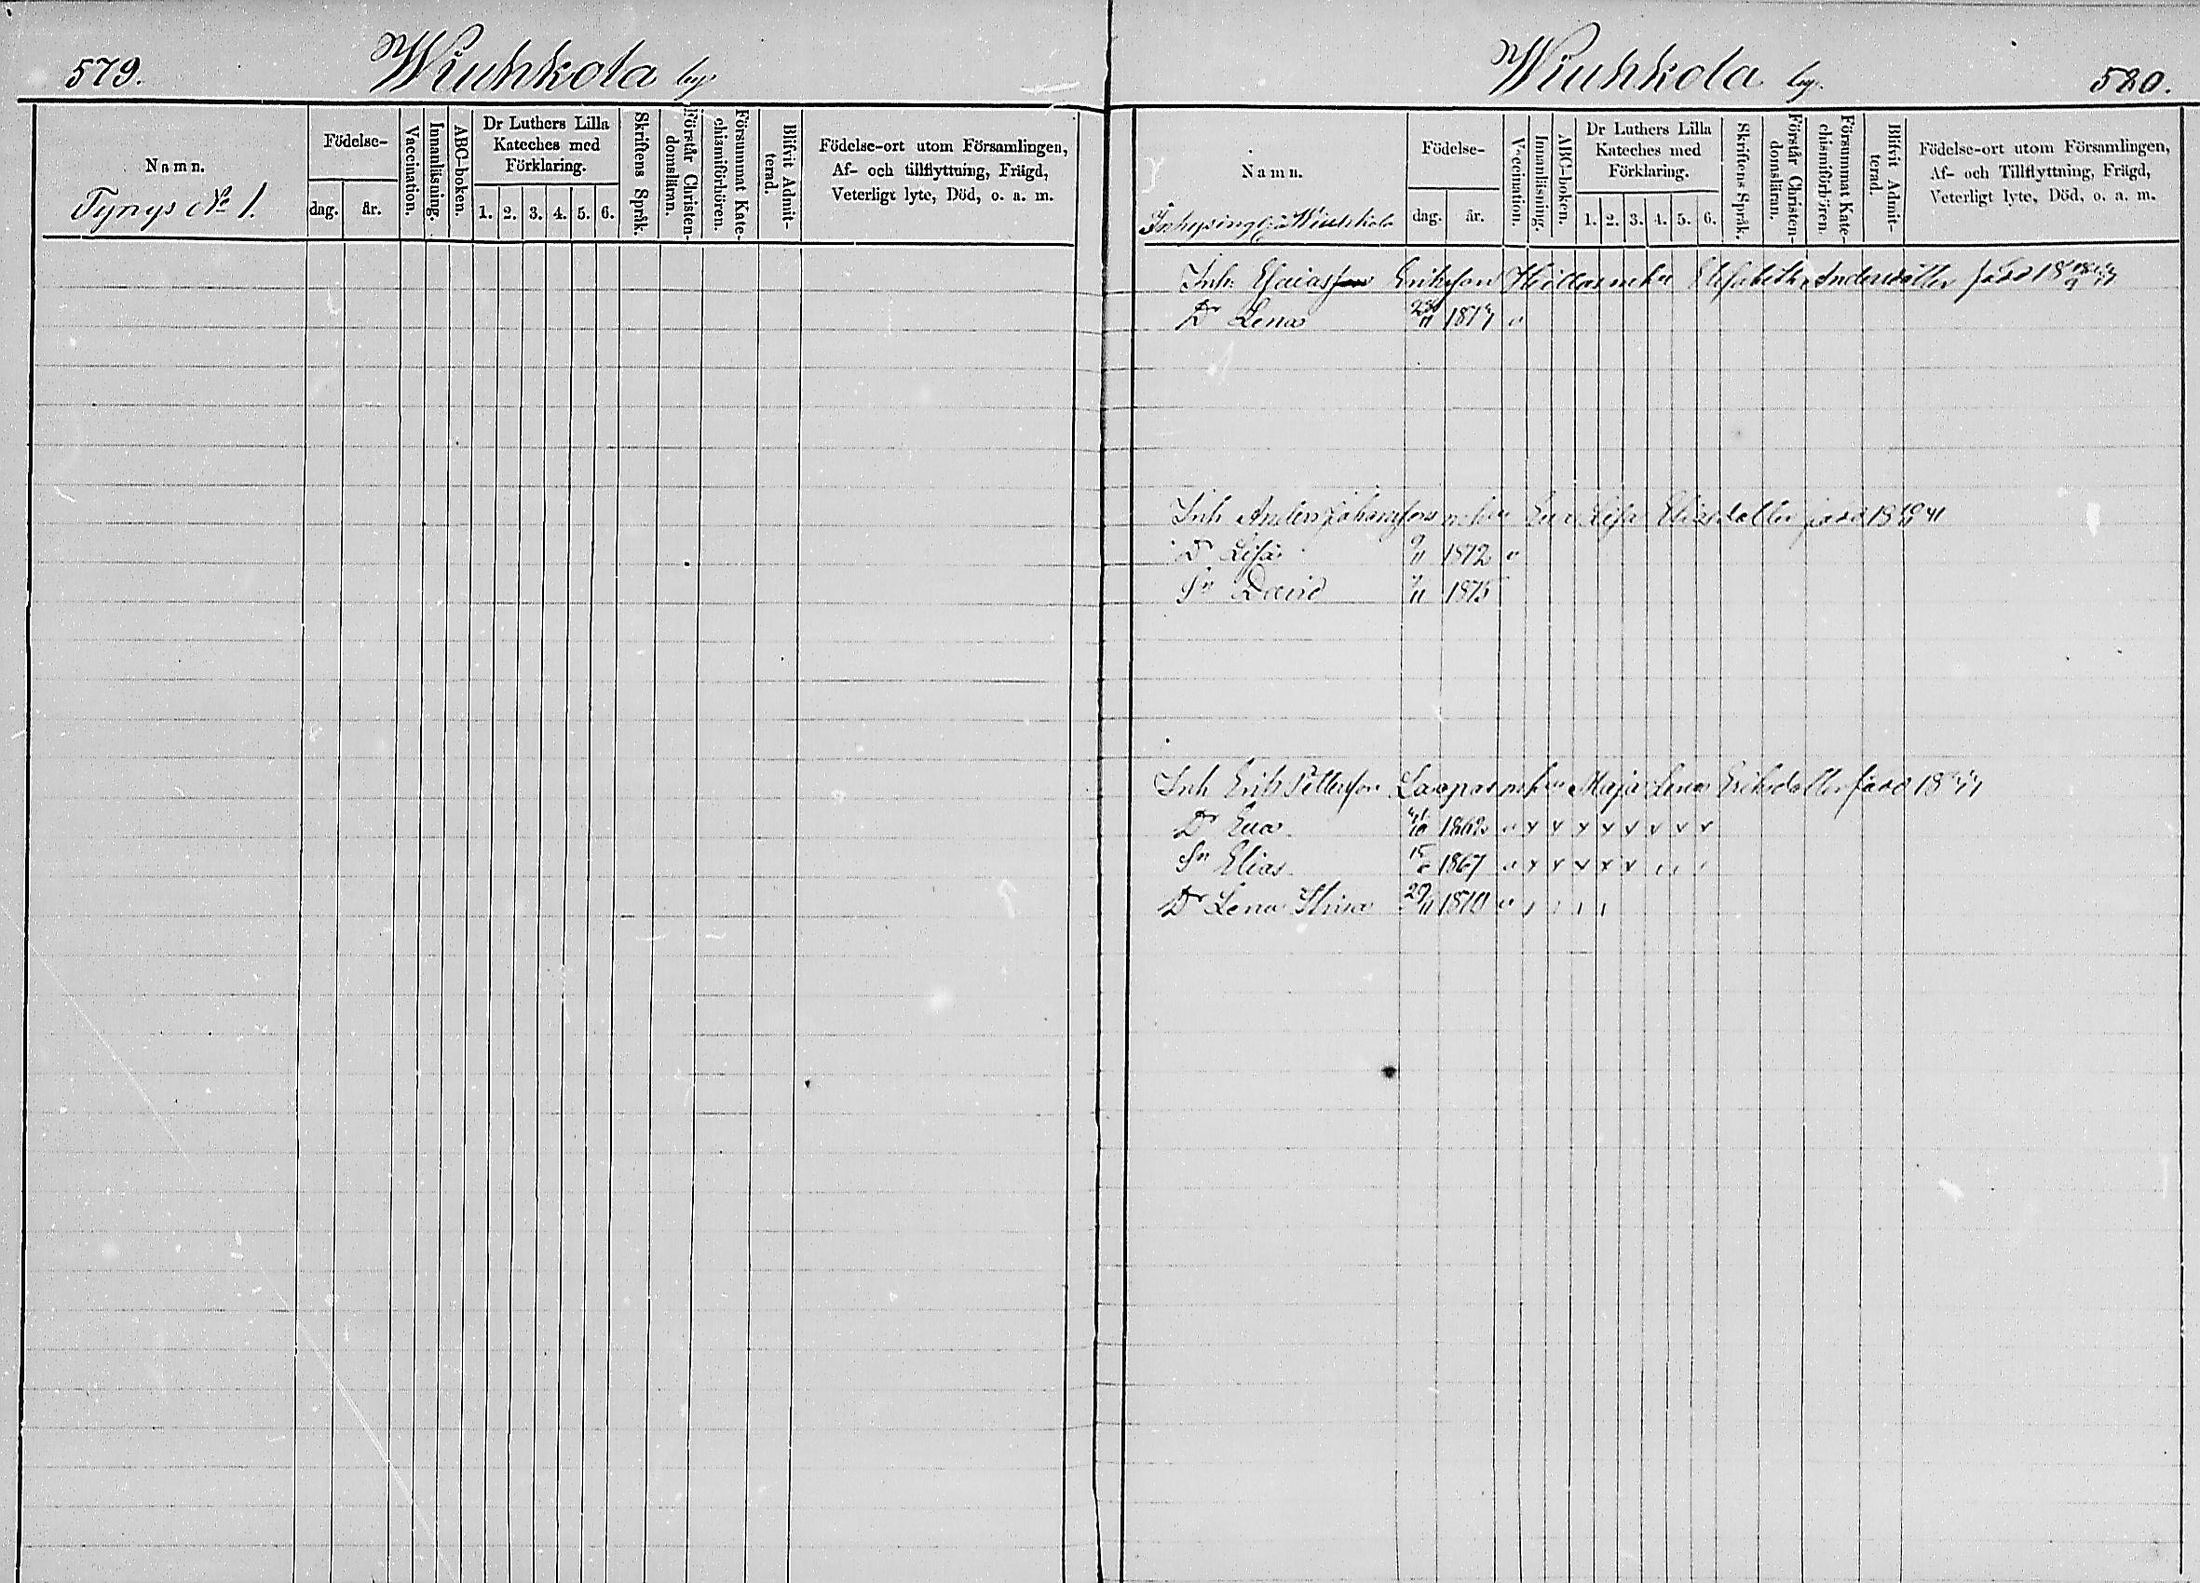 579.
Wiuhkola by
Namn.
Födelse-
dag. år.
Vaccination.
Innanläsning.
ABC-boken.
Dr Luthers Lilla
Kateches med
Förklaring.
1. 2. 3. 4. 5. 6.
Skriftens Språk.
Förstår Christen-
domsläran.
Försummat Kate-
chismiförhören.
Blifvit Admit-
terad.
Födelse-ort utom Församlingen,
Af- och tillflyttning, Frägd,
Veterligt lyte, Död, o. a. m.
Tynys No 1.
Wiuhkola by.
580.
Namn.
Födelse-
dag. år.
Vaccination.
Innanläsning.
ABC-boken.
Dr Luthers Lilla
Kateches med
Förklaring.
1. 2. 3. 4. 5. 6.
Skriftens Språk.
Förstår Christen-
domsläran.
Försummat Kate-
chismiförhören.
Blifvit Admit-
terad.
Födelse-ort utom Församlingen,
Af- och Tillflyttning, Frägd,
Veterligt lyte, Död, o. a. m.
Wiuhkola
Inh. Esaias Eriksson Elisabeth Andersdotter född 18
Dr Lena v
Inh Anders Johansson Eva Lisa Eliasdotter född 18
Dr Lisa 9/11 1872 v
Sn David 1875
Inh Erik Pettersson Maja Lena Eriksdotter född 18
Dr Eva 1862 v x x x x x x x x
Sn Elias 1867 v x x x x x
Dr Lena Stina 29/11 1870 v